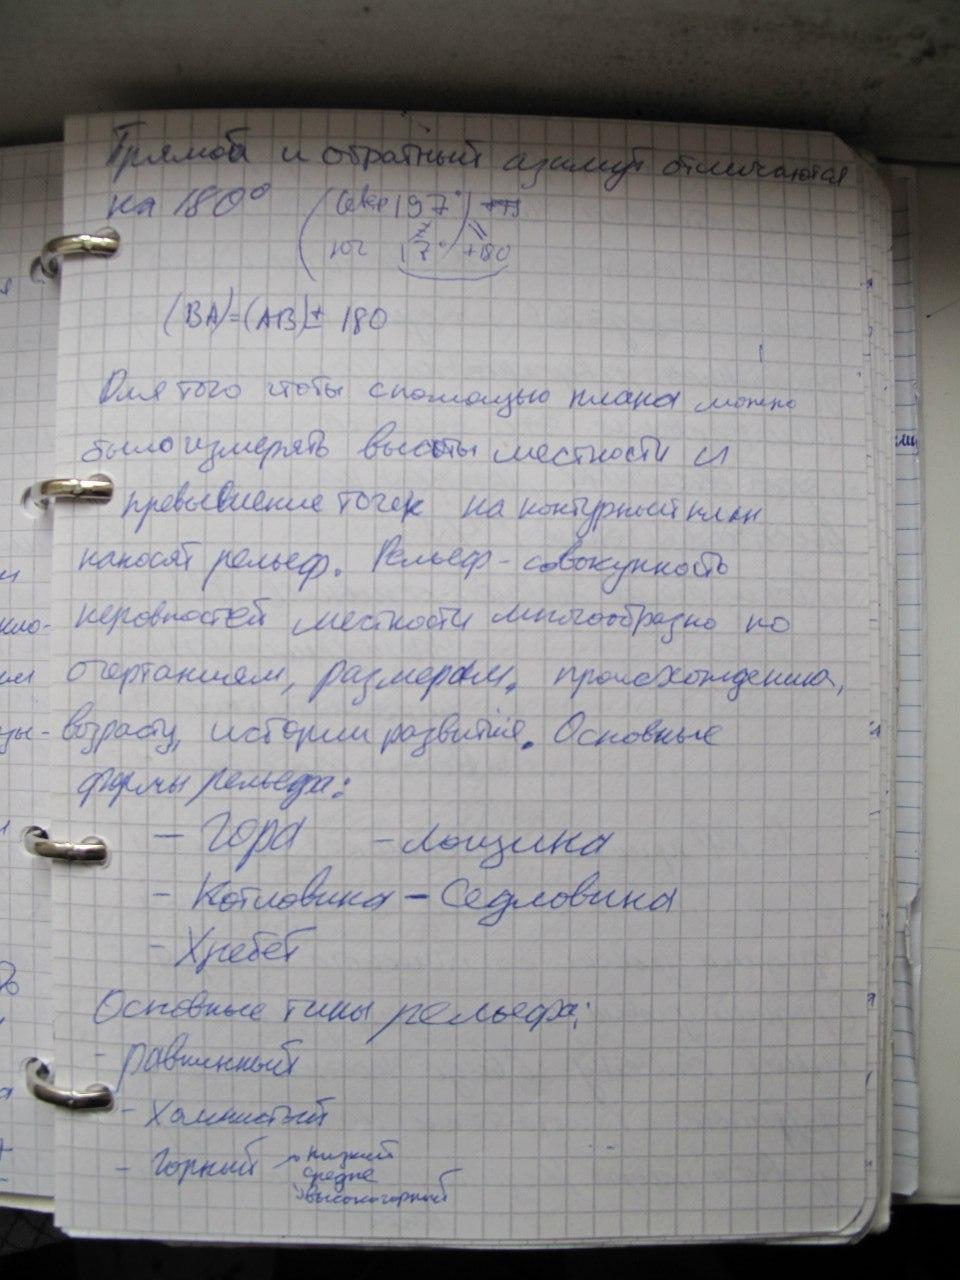 Прямоб и обратный азимут отличаются
на 180°
(север 197°)
юг 17° +180
(BA)=(AB)± 180
Для того чтобы спомощью плана можно
было измерять высоты местности и
превышение точек на контурный план
наносят рельеф. Рельеф - совокупность
неровностей местности многообразно по
очертаниям, размерам, происхождению,
возрасту, истории развития. Основные
формы рельефа:
- Гора - лощина
- Котловина - Седловина
- Хребет
Основные типы рельефа:
- равнинный
- холмистый
- горный → низкий
средне
высокогорный